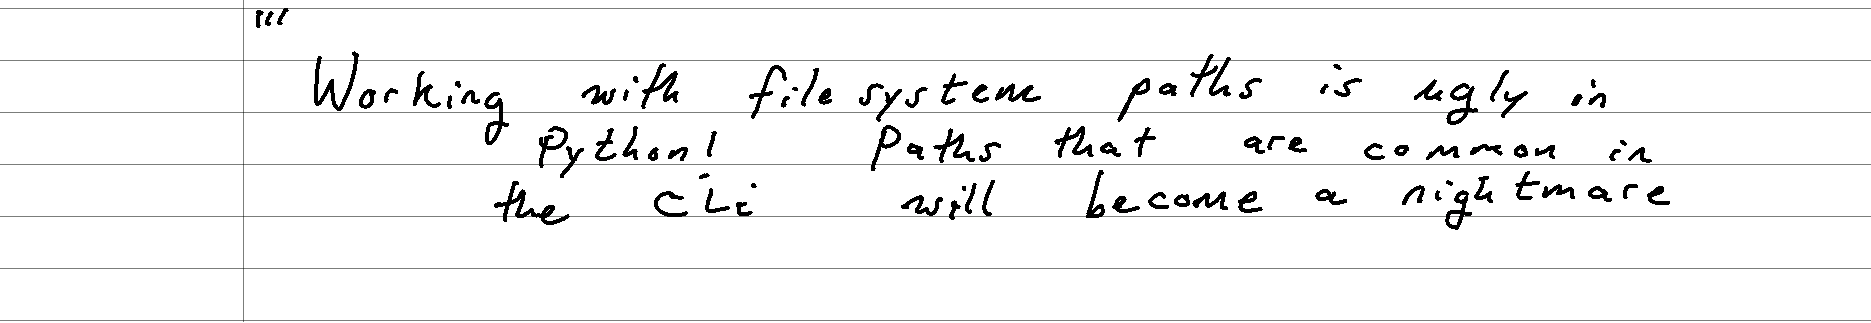 "'
Working with file system paths is ugly in
Python! Paths that are common in
the CLi will become a nightmare